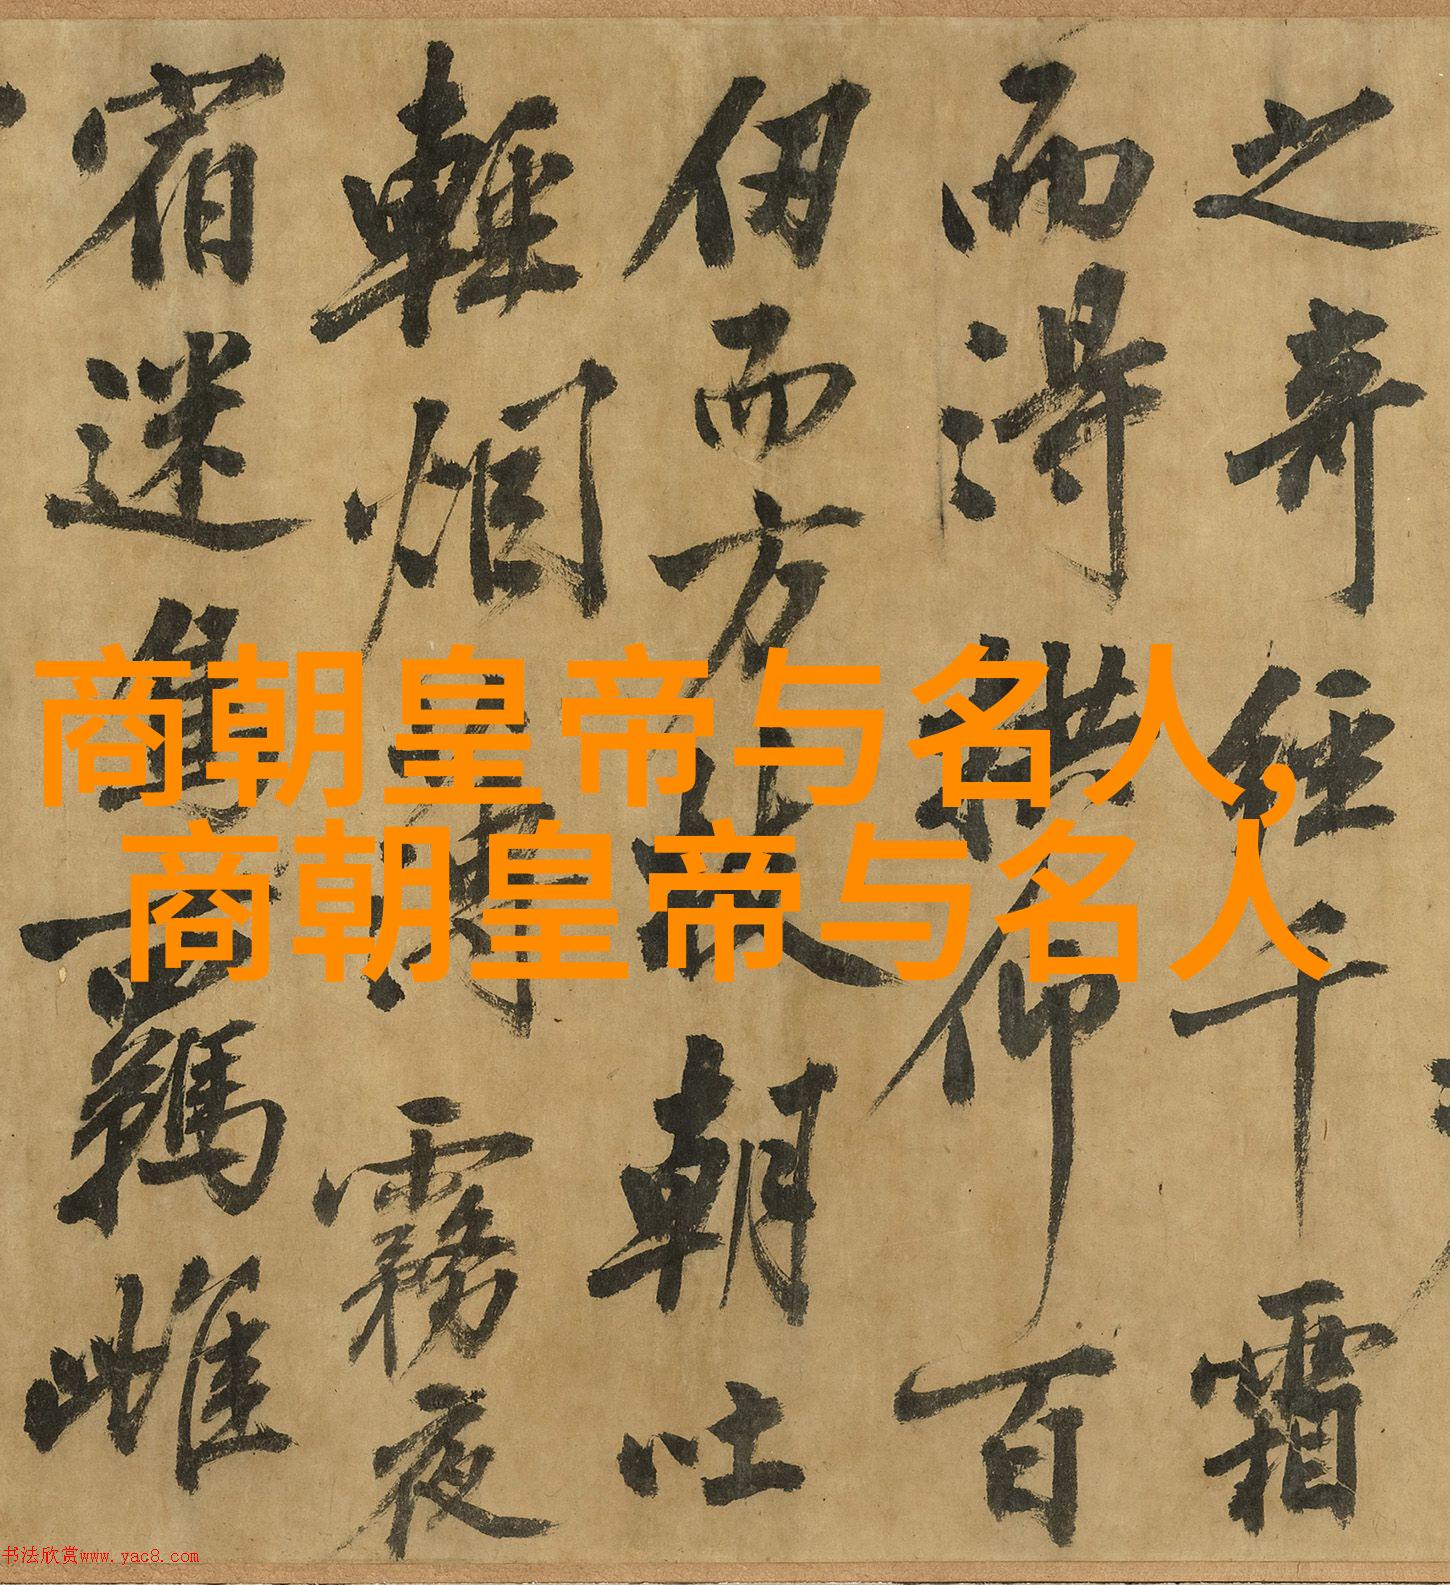 商朝皇帝与名人,
商朝皇帝与名人
之奇經千霜
而得拱仰百
仞而方枝朝吐
輕烟薄霧夜
宿迷鳥羈雌
书法欣赏www.yac8.com